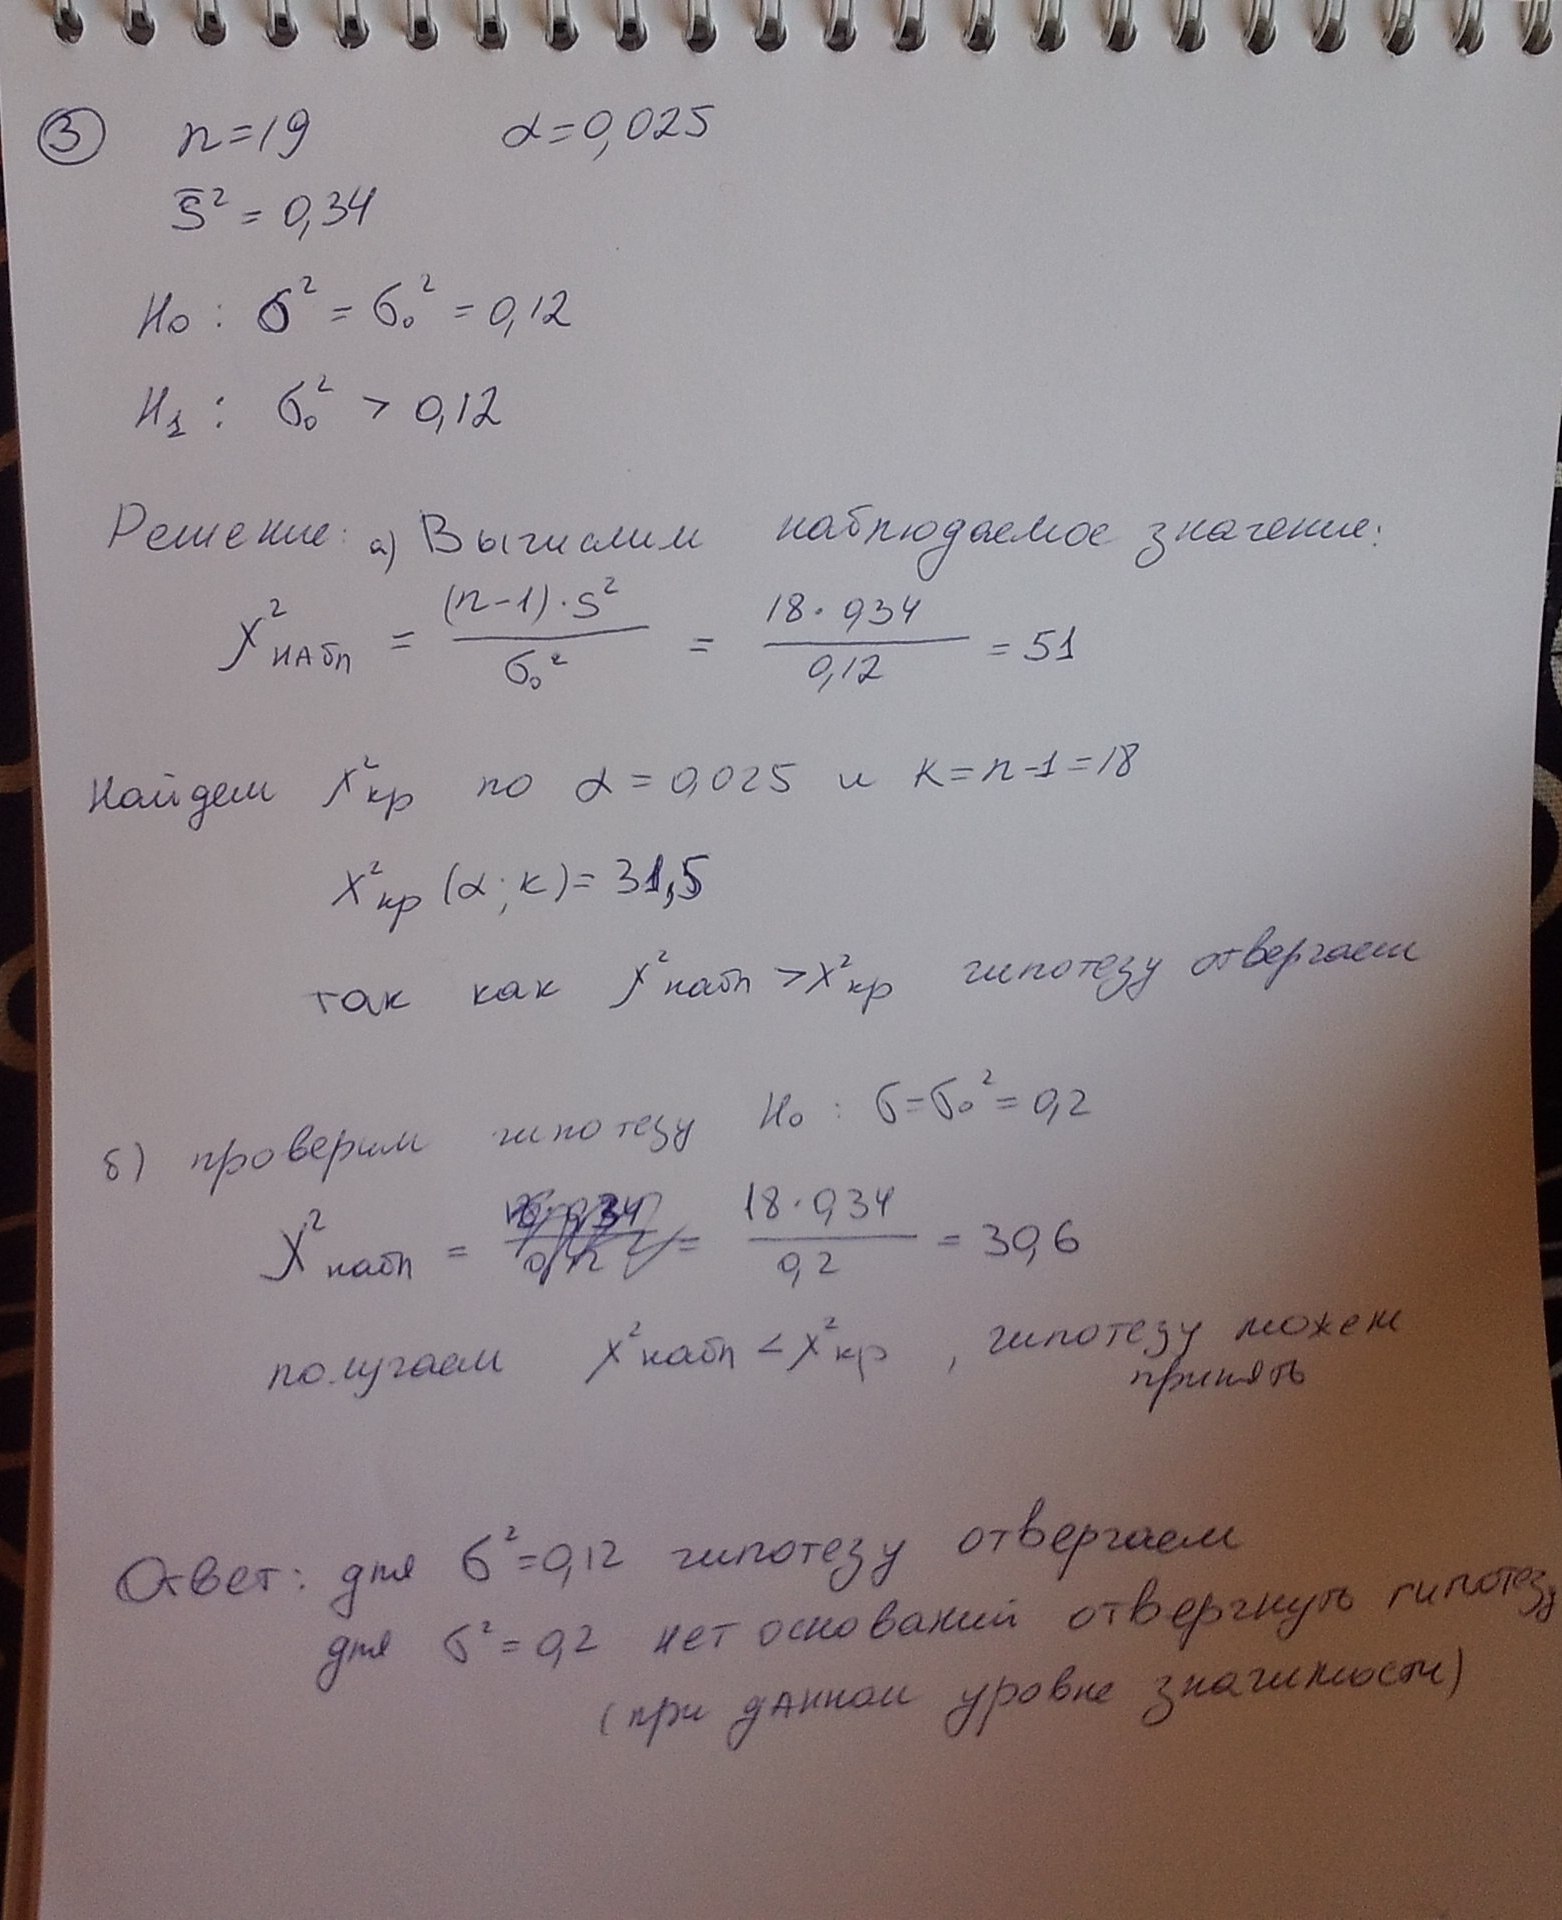 ③ n=19 α=0,025
S̄² = 0,34
H₀ : σ² = σ₀² = 0,12
H₁ : σ₀² > 0,12
Решение: а) Вычислим наблюдаемое значение:
χ²набл = (n-1)·S² / σ₀² = 18·0,34 / 0,12 = 51
Найдем χ²кр по α = 0,025 и k = n-1 = 18
χ²кр (α; k) = 31,5
так как χ²набл > χ²кр гипотезу отвергаем
б) проверим гипотезу H₀ : σ = σ₀² = 0,2
χ²набл = = 18·0,34 / 0,2 = 30,6
получаем χ²набл < χ²кр , гипотезу можем
принять
Ответ: для σ² = 0,12 гипотезу отвергаем
для σ² = 0,2 нет оснований отвергнуть гипотезу
(при данном уровне значимости)